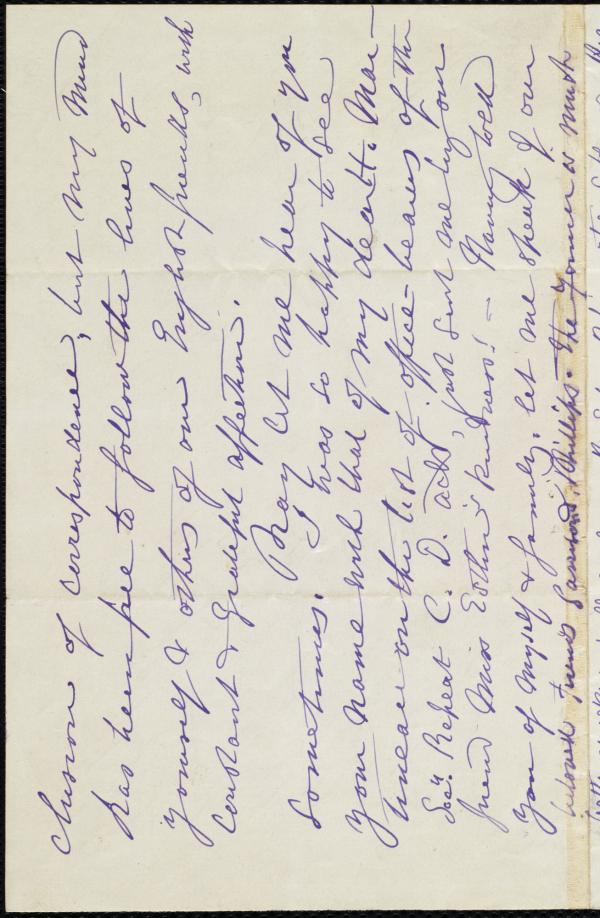 clusion of correspondence, but my mind
has been free to follow the lives of
yourself & others of our English friends, with
constant & grateful affection.
Pray let me hear of you
sometimes. I was so happy to see
your name with that of my dear H. Mar-
tineau on the list of office-bearers of the
Soc'y. Repeal C. D. acts, just sent me by our
friend Miss Estlin's kindness! — Having told
you of myself & family, let me speak of our
beloved friends Garrison & Phillips. The former is much